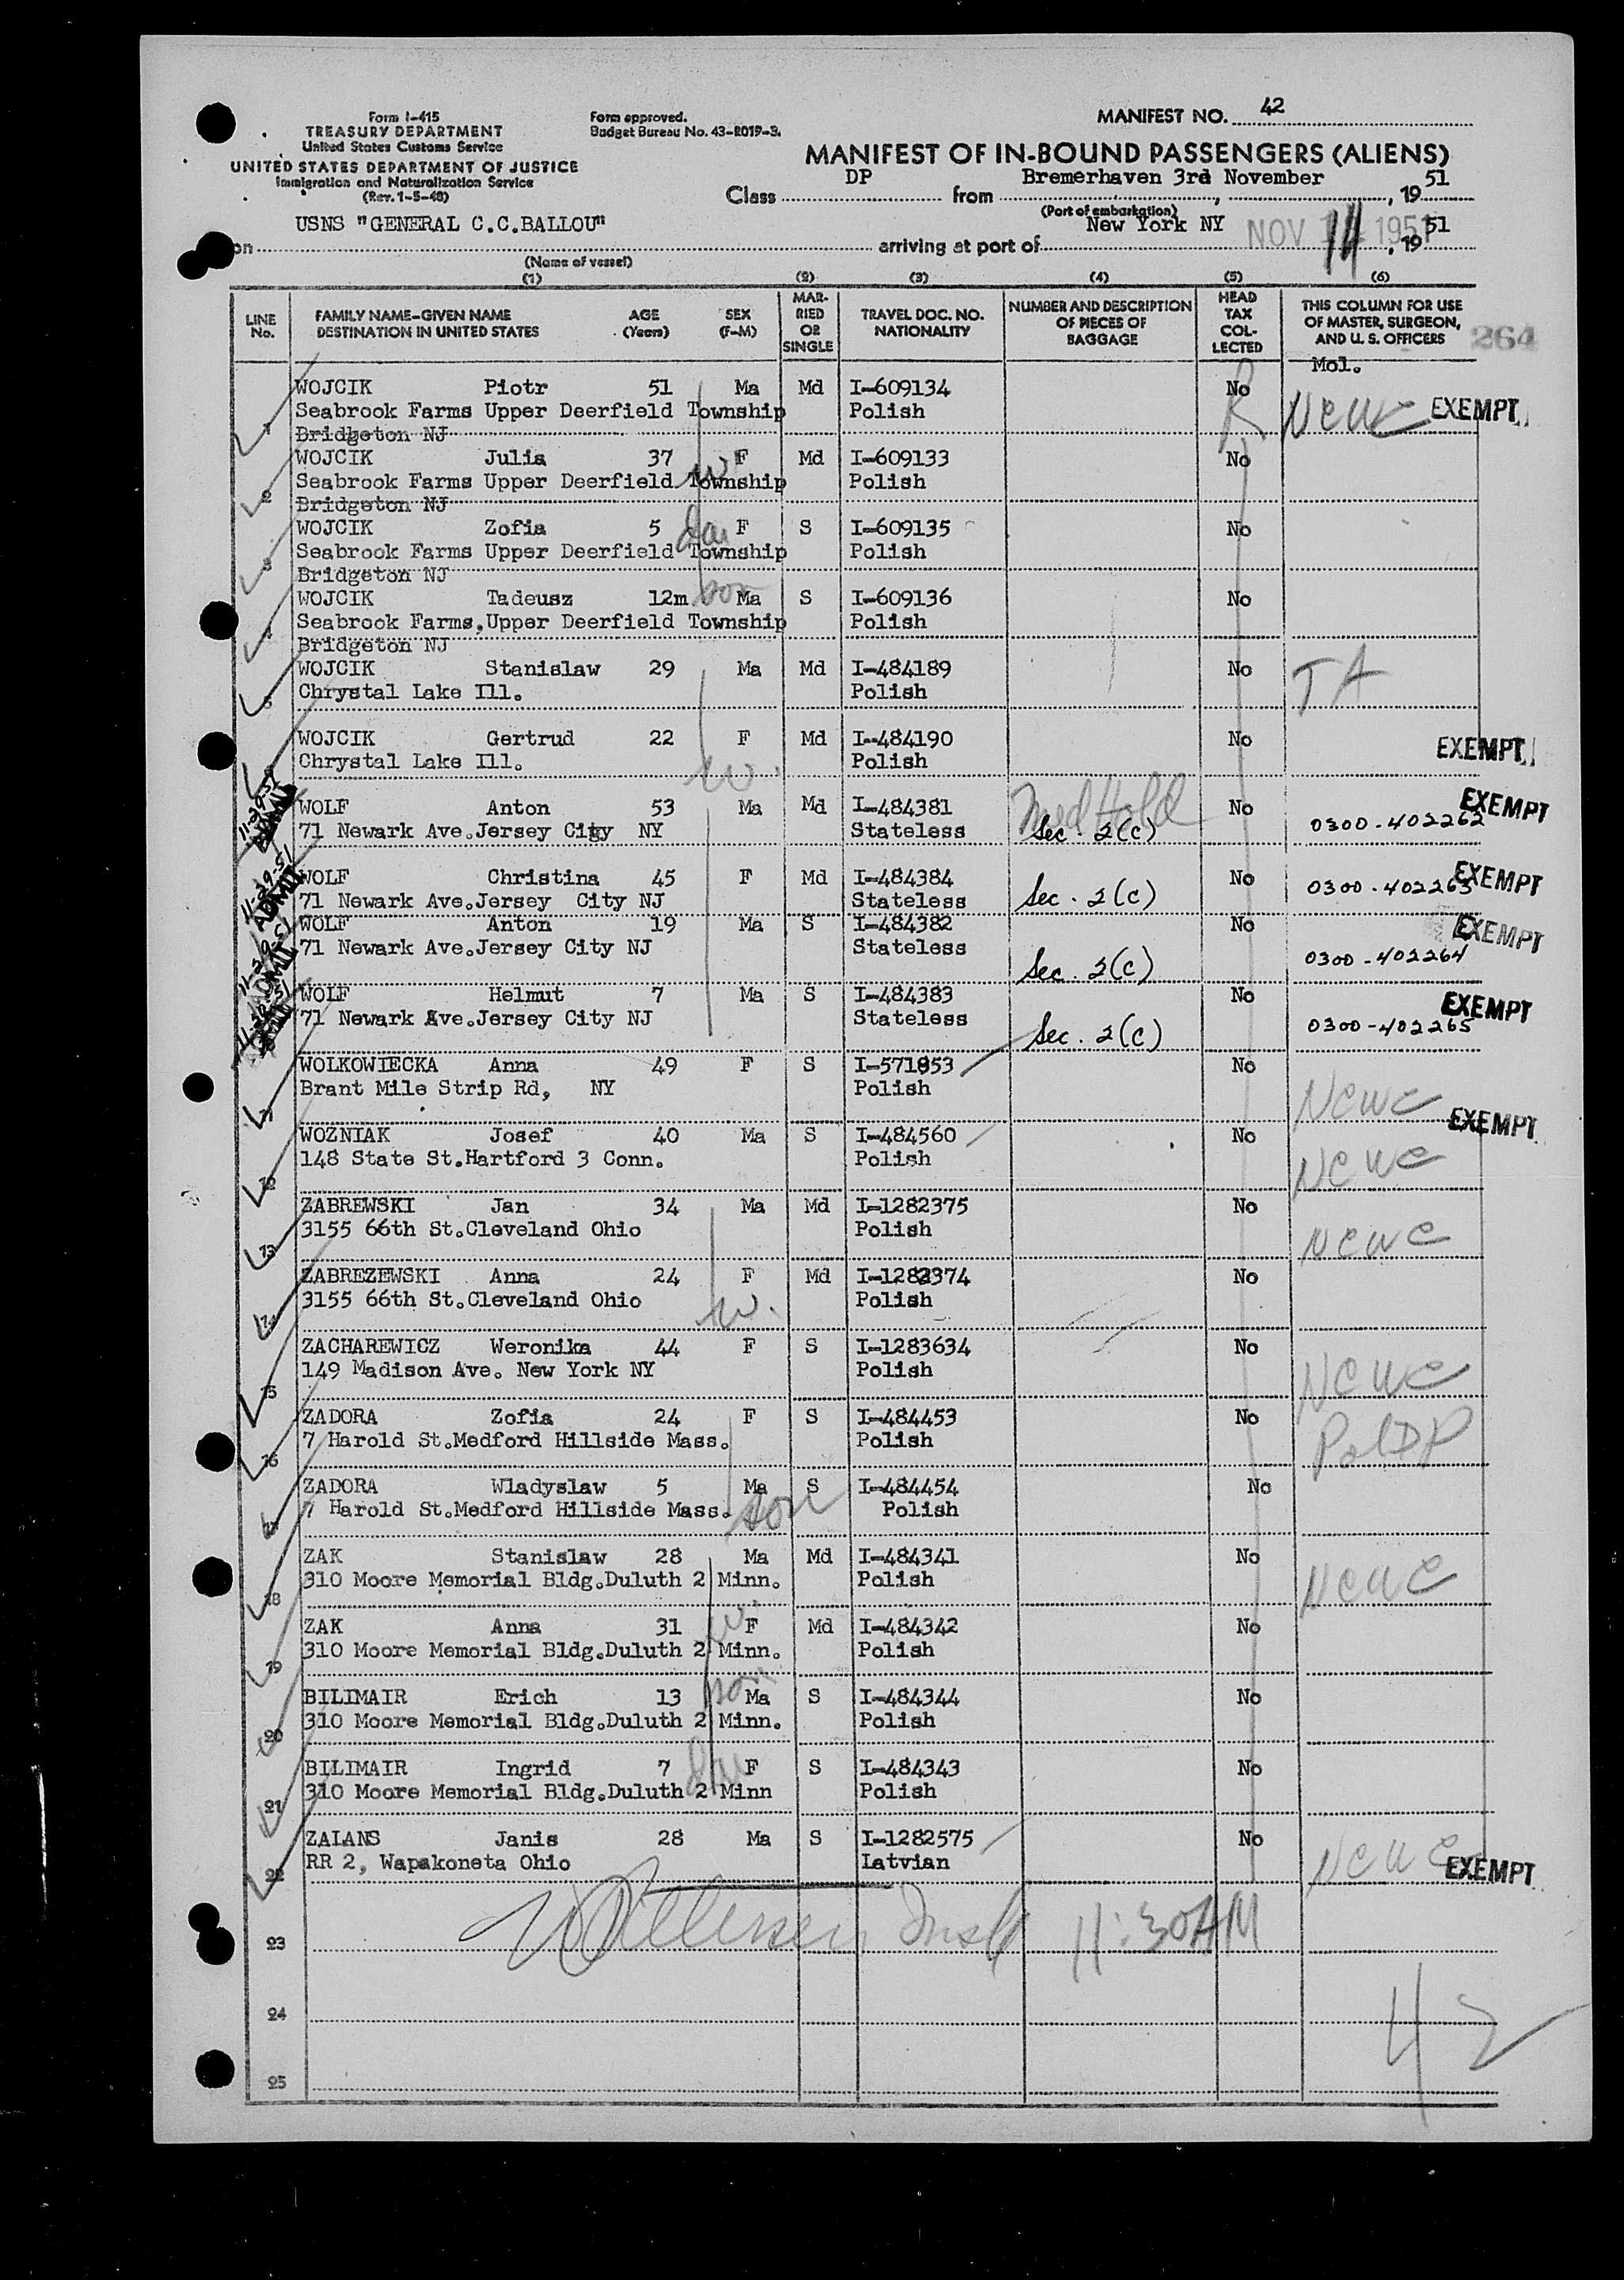 Form I-415
TREASURY DEPARTMENT
United States Customs Service
UNITED STATES DEPARTMENT OF JUSTICE
Immigration and Naturalization Service
(Rev. 1-5-48)
Form approved.
Budget Bureau No. 43-R019-3.
MANIFEST NO. 42
MANIFEST OF IN-BOUND PASSENGERS (ALIENS)
Class DP from Bremerhaven 3rd November, 1951
(Port of embarkation)
on USNS "GENERAL C.C.BALLOU" arriving at port of New York NY NOV 14 1951, 1951
(Name of vessel)
(1) (2) (3) (4) (5) (6)
LINE No. FAMILY NAME–GIVEN NAME DESTINATION IN UNITED STATES AGE (Years) SEX (F–M) MARRIED OR SINGLE TRAVEL DOC. NO. NATIONALITY NUMBER AND DESCRIPTION OF PIECES OF BAGGAGE HEAD TAX COLLECTED THIS COLUMN FOR USE OF MASTER, SURGEON, AND U. S. OFFICERS 264
Mol.
1 WOJCIK Piotr 51 Ma Md I-609134 No NCWC EXEMPT
Seabrook Farms Upper Deerfield Township Polish
Bridgeton NJ
2 WOJCIK Julia 37 W F Md I-609133 No
Seabrook Farms Upper Deerfield Township Polish
Bridgeton NJ
3 WOJCIK Zofia 5 dau F S I-609135 No
Seabrook Farms Upper Deerfield Township Polish
Bridgeton NJ
4 WOJCIK Tadeusz 12m son Ma S I-609136 No
Seabrook Farms,Upper Deerfield Township Polish
Bridgeton NJ
5 WOJCIK Stanislaw 29 Ma Md I-484189 No TA
Chrystal Lake Ill. Polish
WOJCIK Gertrud 22 F Md I-484190 No EXEMPT
Chrystal Lake Ill. W. Polish
11-29-51 ADMIT WOLF Anton 53 Ma Md I-484381 Med Hold No EXEMPT
71 Newark Ave.Jersey City NY Stateless Sec. 2(c) 0300-402262
11-29-51 ADMIT WOLF Christina 45 F Md I-484384 No EXEMPT
71 Newark Ave.Jersey City NJ Stateless Sec. 2(c) 0300-402263
11-29-51 ADMIT WOLF Anton 19 Ma S I-484382 No EXEMPT
71 Newark Ave.Jersey City NJ Stateless Sec. 2(c) 0300-402264
11-29-51 WOLF Helmut 7 Ma S I-484383 No EXEMPT
71 Newark Ave.Jersey City NJ Stateless Sec. 2(c) 0300-402265
11 WOLKOWIECKA Anna 49 F S I-571853 No
Brant Mile Strip Rd, NY Polish NCWC
12 WOZNIAK Josef 40 Ma S I-484560 No EXEMPT
148 State St.Hartford 3 Conn. Polish NCWC
13 ZABREWSKI Jan 34 Ma Md I-1282375 No
3155 66th St.Cleveland Ohio Polish NCWC
14 ZABREZEWSKI Anna 24 F Md I-1282374 No
3155 66th St.Cleveland Ohio W. Polish
15 ZACHAREWICZ Weronika 44 F S I-1283634 No
149 Madison Ave. New York NY Polish NCWC
16 ZADORA Zofia 24 F S I-484453 No
7 Harold St.Medford Hillside Mass. Polish Pol DP
17 ZADORA Wladyslaw 5 Ma S I-484454 No
7 Harold St.Medford Hillside Mass. son Polish
18 ZAK Stanislaw 28 Ma Md I-484341 No
310 Moore Memorial Bldg.Duluth 2 Minn. Polish NCWC
19 ZAK Anna 31 W. F Md I-484342 No
310 Moore Memorial Bldg.Duluth 2 Minn. Polish
20 BILIMAIR Erich 13 son Ma S I-484344 No
310 Moore Memorial Bldg.Duluth 2 Minn. Polish
21 BILIMAIR Ingrid 7 dau F S I-484343 No
310 Moore Memorial Bldg.Duluth 2 Minn Polish
22 ZALANS Janis 28 Ma S I-1282575 No
RR 2, Wapakoneta Ohio Latvian NCWC EXEMPT
23 Insp 11:30AM
24 42
25